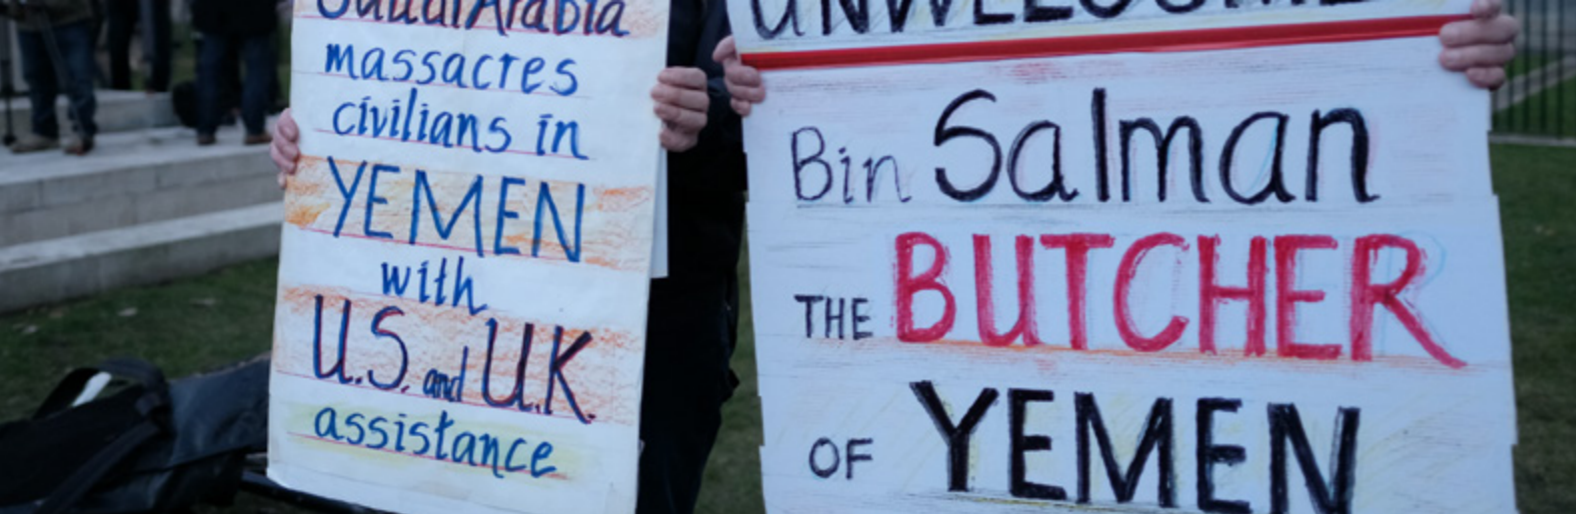 Saudi Arabia
massacres
civilians in
YEMEN
with
U.S. and U.K.
assistance
UNWELCOME
Bin Salman
THE BUTCHER
OF YEMEN